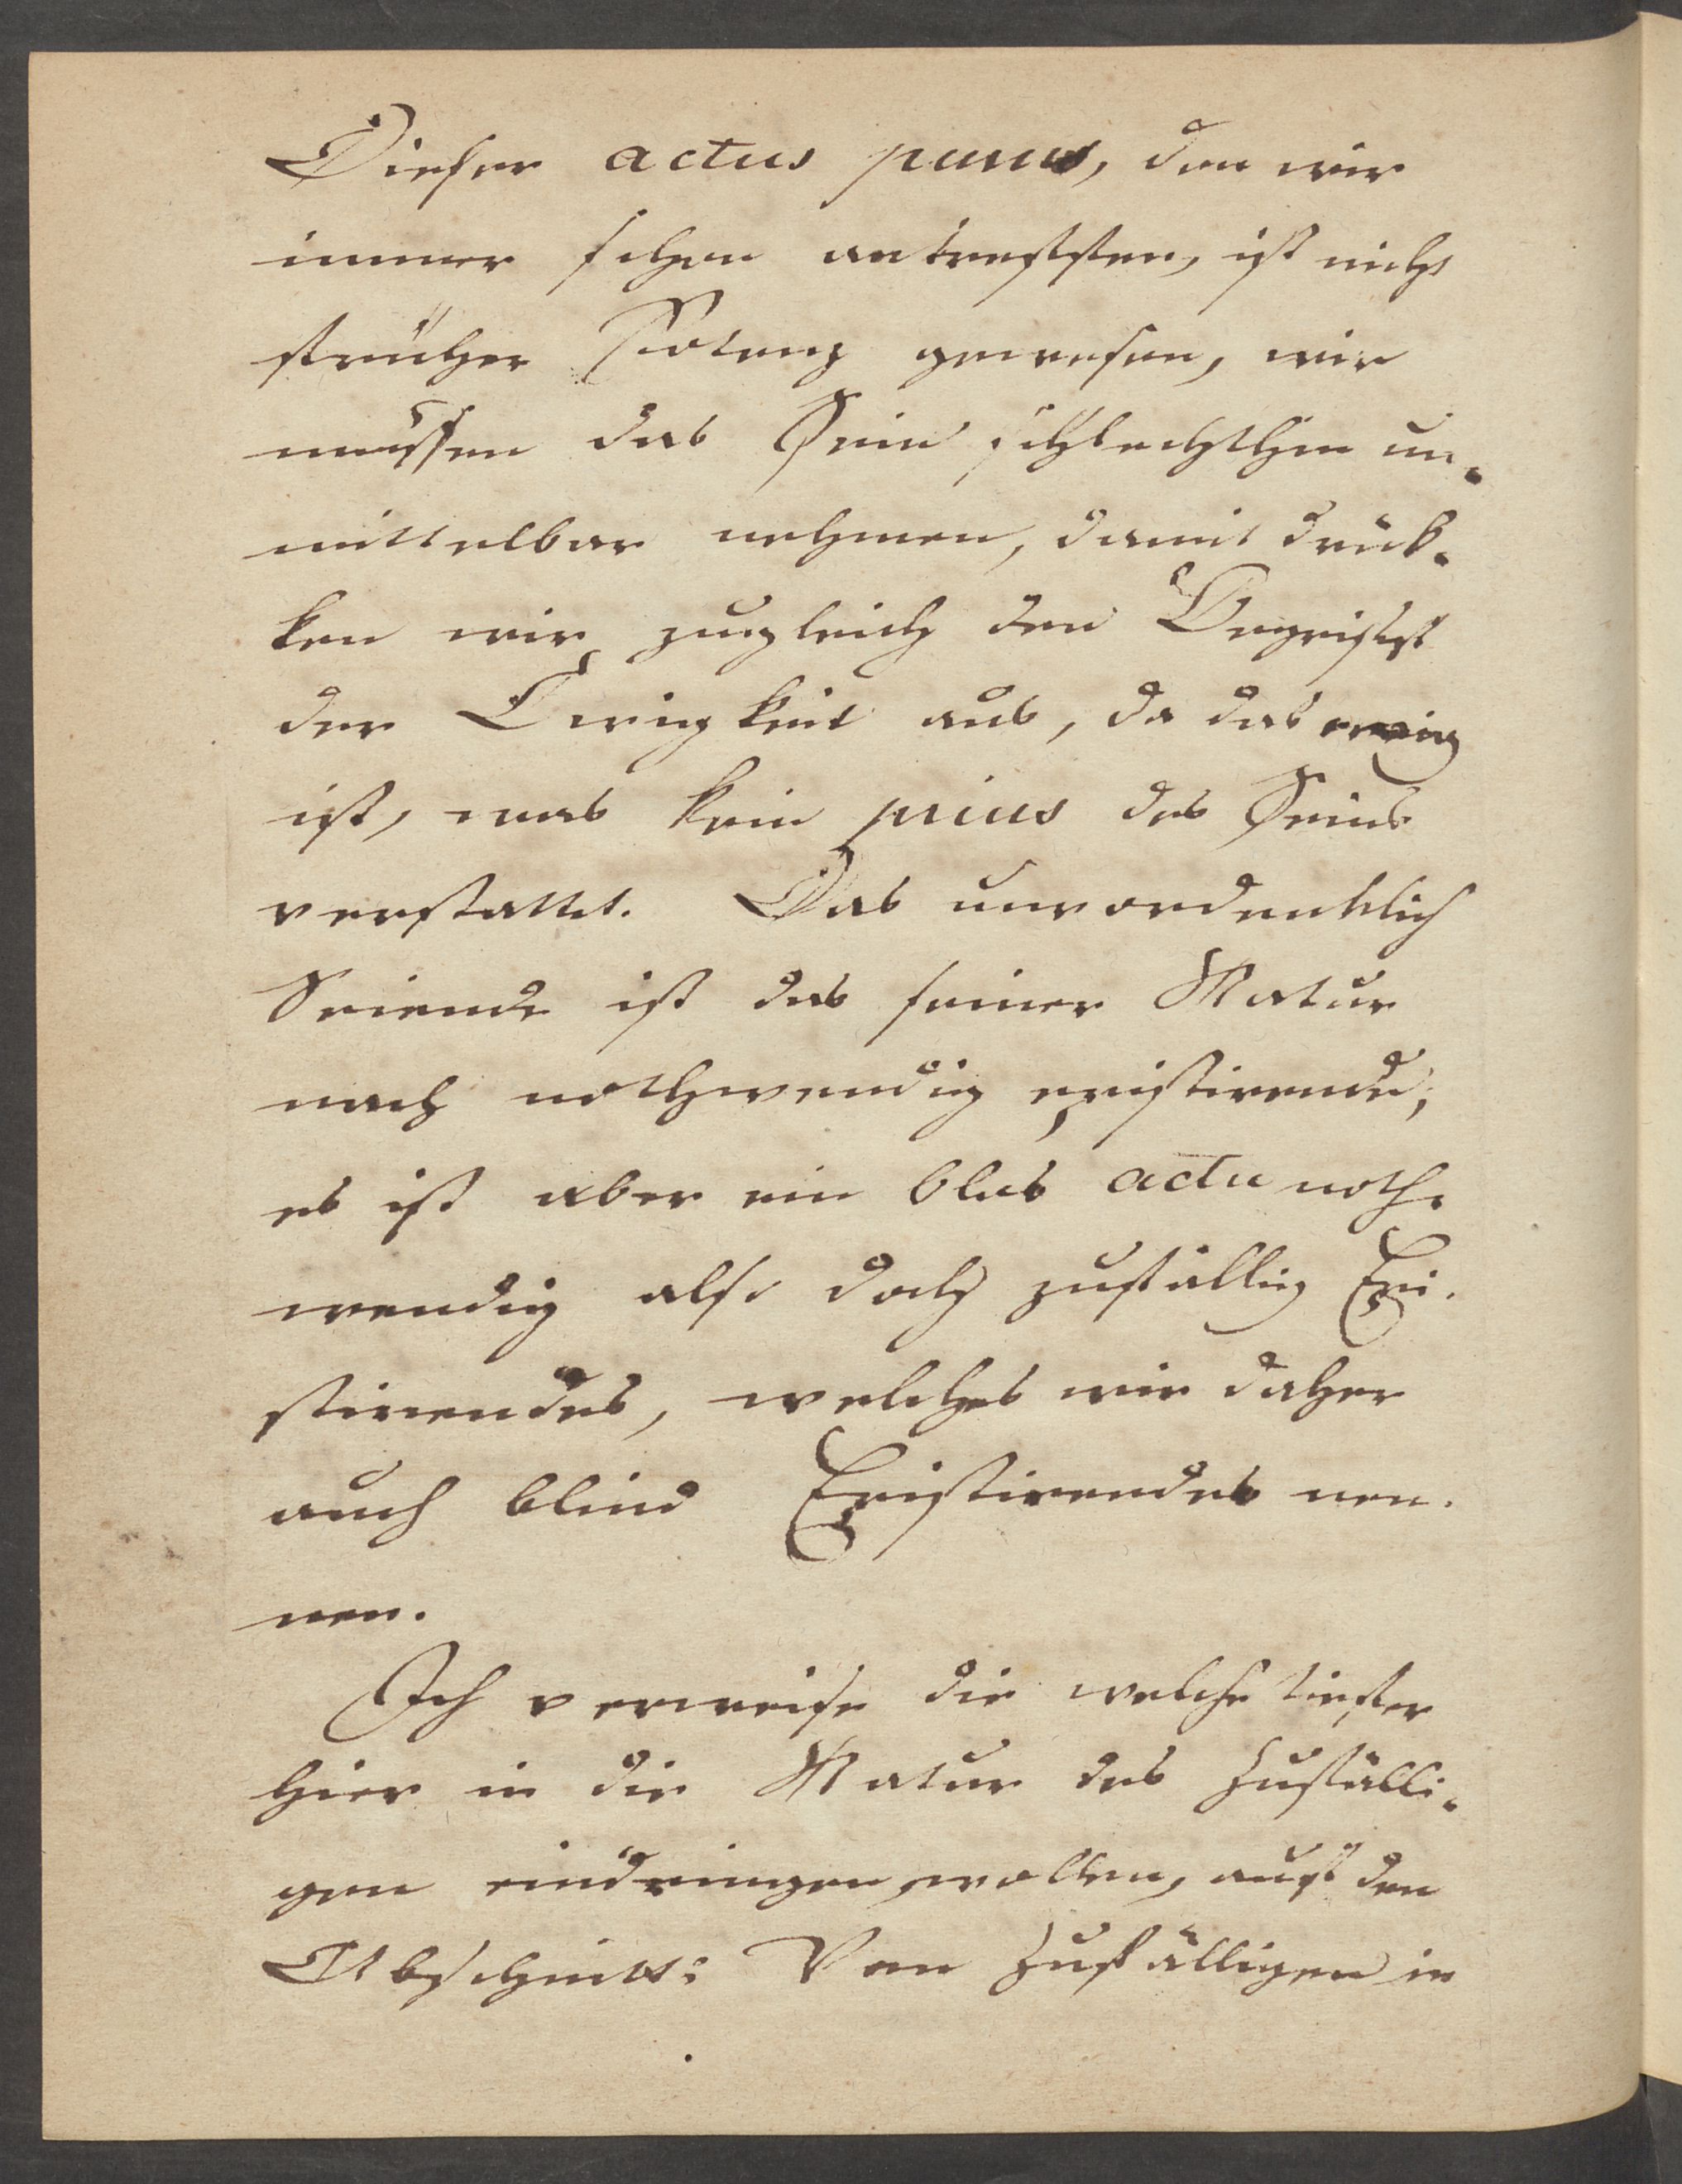 Dieser actus purus, den wir
immer schon antreffen, ist nicht
früher Potenz gewesen, wir
müssen das Sein schlechthin un-
mittelbar nehmen, damit drük-
ken wir zugleich den Begriff
der Ewigkeit aus, da das ewig
ist, was kein prius des Seins
verstattet. Das unvordenklich
Seiende ist das seiner Natur
nach nothwendig existirende;
es ist aber ein blos actu noth-
wendig also doch zufällig Exi-
stirendes, welches wir daher
auch blind Existirendes nen-
nen.
Ich verweise die welche tiefer
hier in die Natur des Zufälli-
gen eindringen wollen, auf den
Abschnitt: Von Zufälligen in